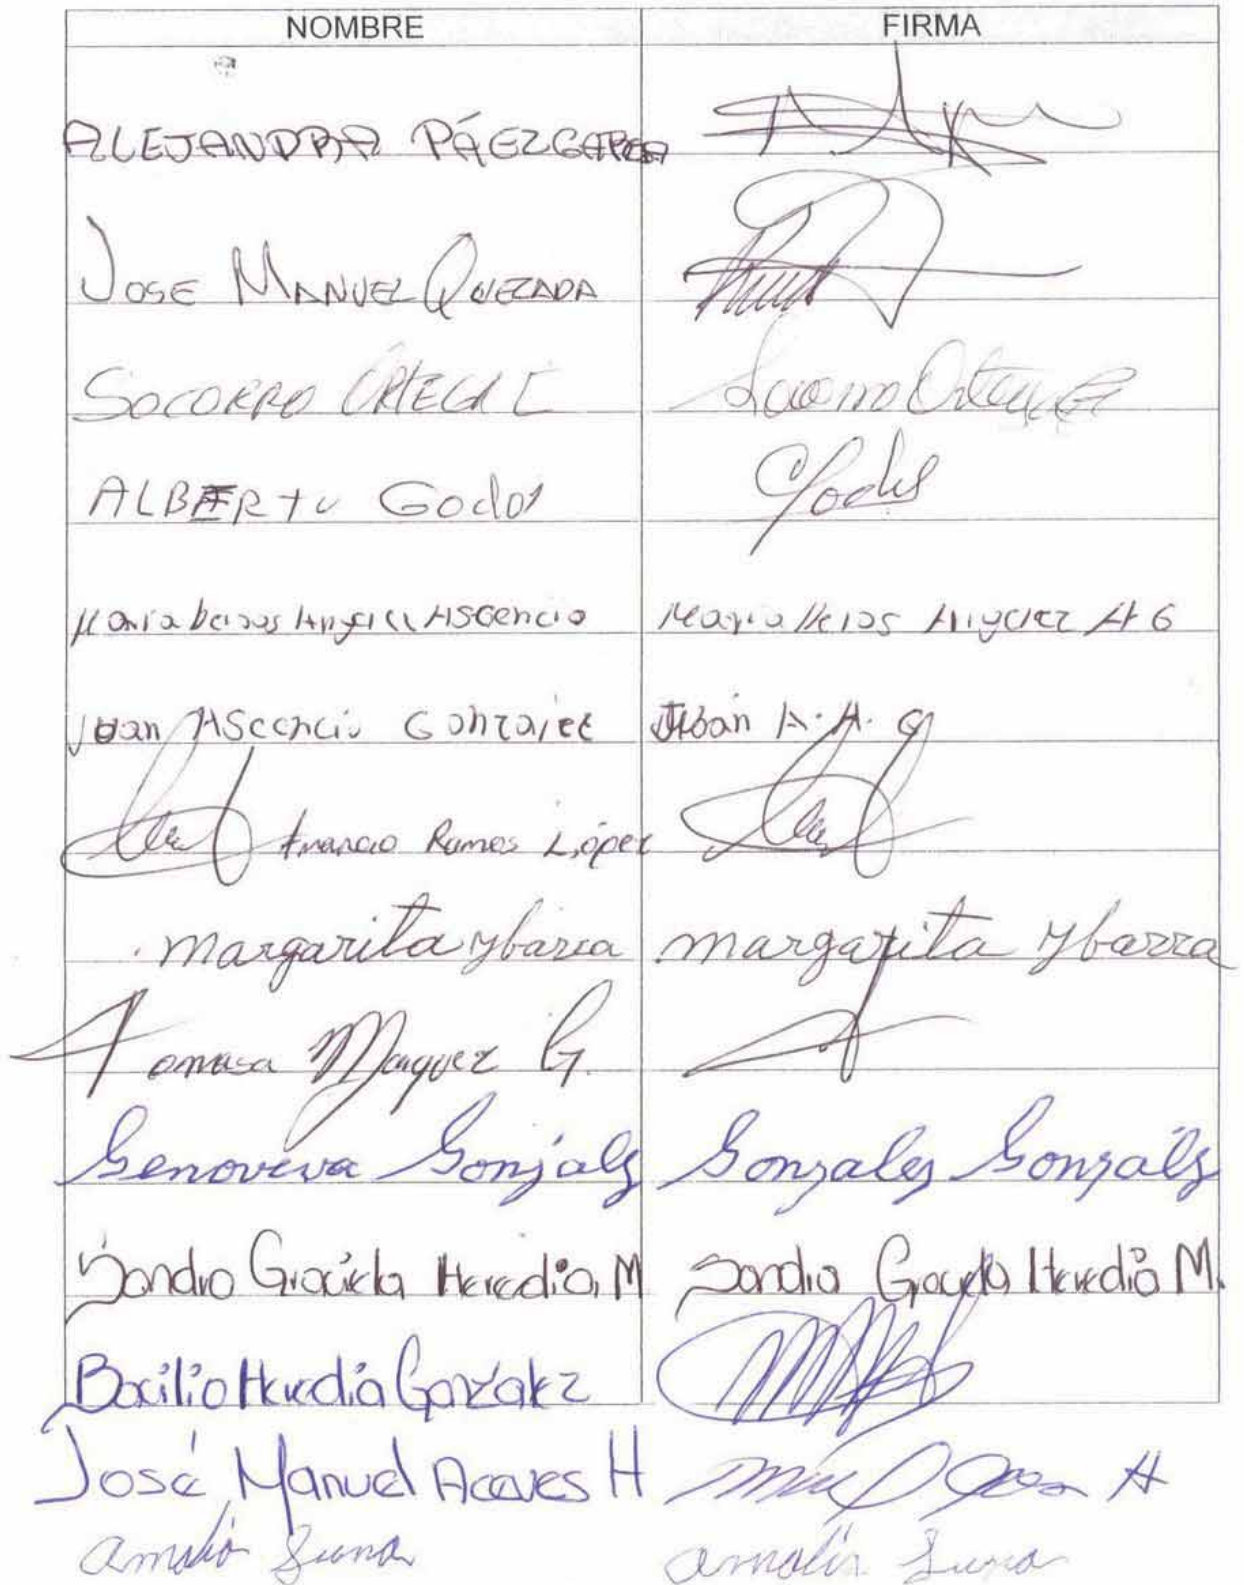 NOMBRE FIRMA
ALEJANDRA PÁEZ GARCIA
JOSE MANUEL QUEZADA
SOCORRO ORTEGA C Socorro Ortega C
ALBERTO Godoy Godoy
Maria Ascencio Maria A G
Juan Ascencio Gonzalez Juan A. A. G
Ramos López
margarita ybarra margarita ybarra
Tomasa Marquez G.
Genoveva Gonzalez Gonzales Gonzalez
Sandra Graciela Heredia M Sandra Graciela Heredia M.
Bacilio Heredia Gonzalez
José Manuel Aceves H
amalia Luna amalia Luna